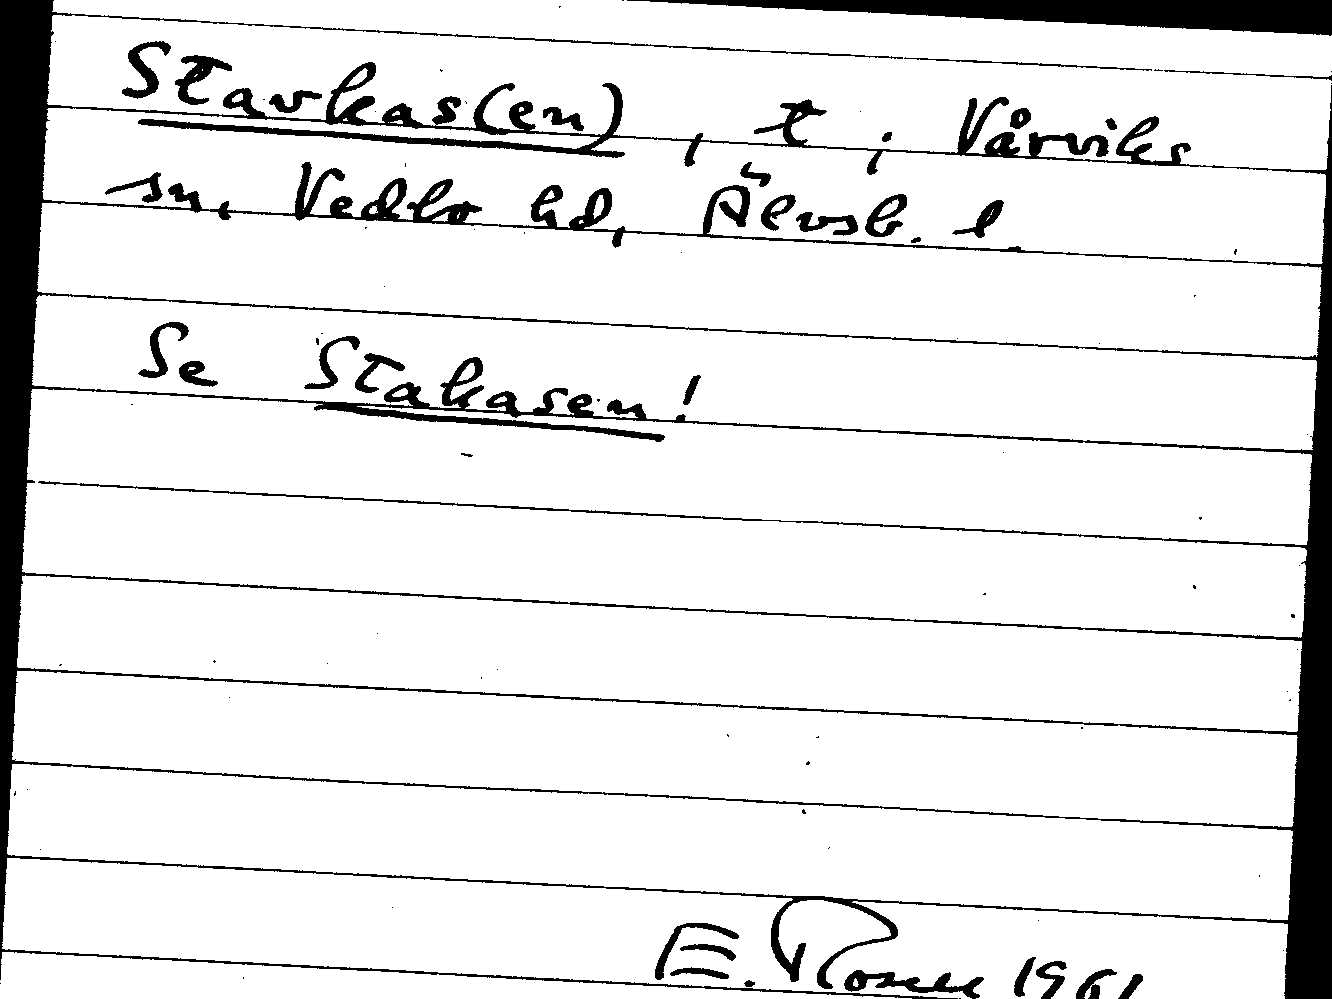 Stavkas(en), t i Vårviks
sn, Vedbo hd, Älvsb. l.
Se Stakasen!
E. Rosell 1961